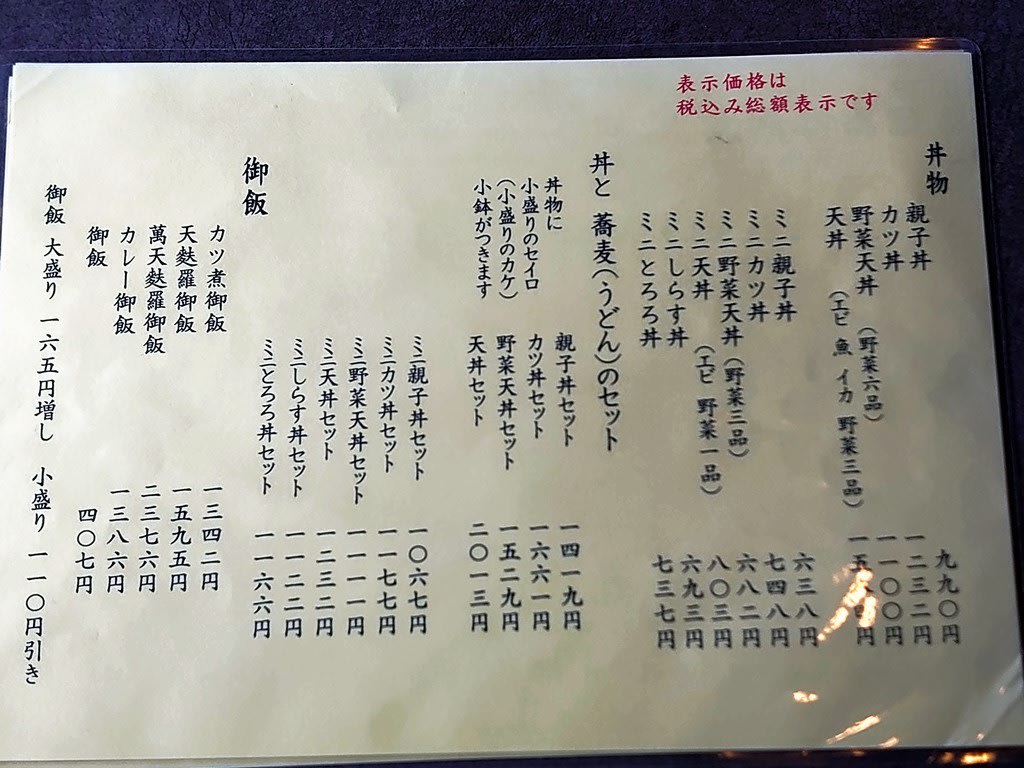 表示価格は
税込み総額表示です
丼物
親子丼 九九〇円
カツ丼 一二三二円
野菜天丼 (野菜六品) 一一〇〇円
天丼 (エビ 魚 イカ 野菜三品) 一五
ミニ親子丼 六三八円
ミニカツ丼 七四八円
ミニ野菜天丼 (野菜三品) 六八二円
ミニ天丼 (エビ 野菜一品) 八〇三円
ミニしらす丼 六九三円
ミニとろろ丼 七三七円
丼と 蕎麦(うどん)のセット
丼物に
小盛りのセイロ
(小盛りのカケ)
小鉢がつきます
親子丼セット 一四一九円
カツ丼セット 一六六一円
野菜天丼セット 一五二九円
天丼セット 二〇一三円
ミニ親子丼セット 一〇六七円
ミニカツ丼セット 一一七七円
ミニ野菜天丼セット 一一一一円
ミニ天丼セット 一二三二円
ミニしらす丼セット 一一二二円
ミニとろろ丼セット 一一六六円
御飯
カツ煮御飯 一三四二円
天麩羅御飯 一五九五円
萬天麩羅御飯 二三七六円
カレー御飯 一三八六円
御飯 四〇七円
御飯 大盛り 一六五円増し 小盛り 一一〇円引き